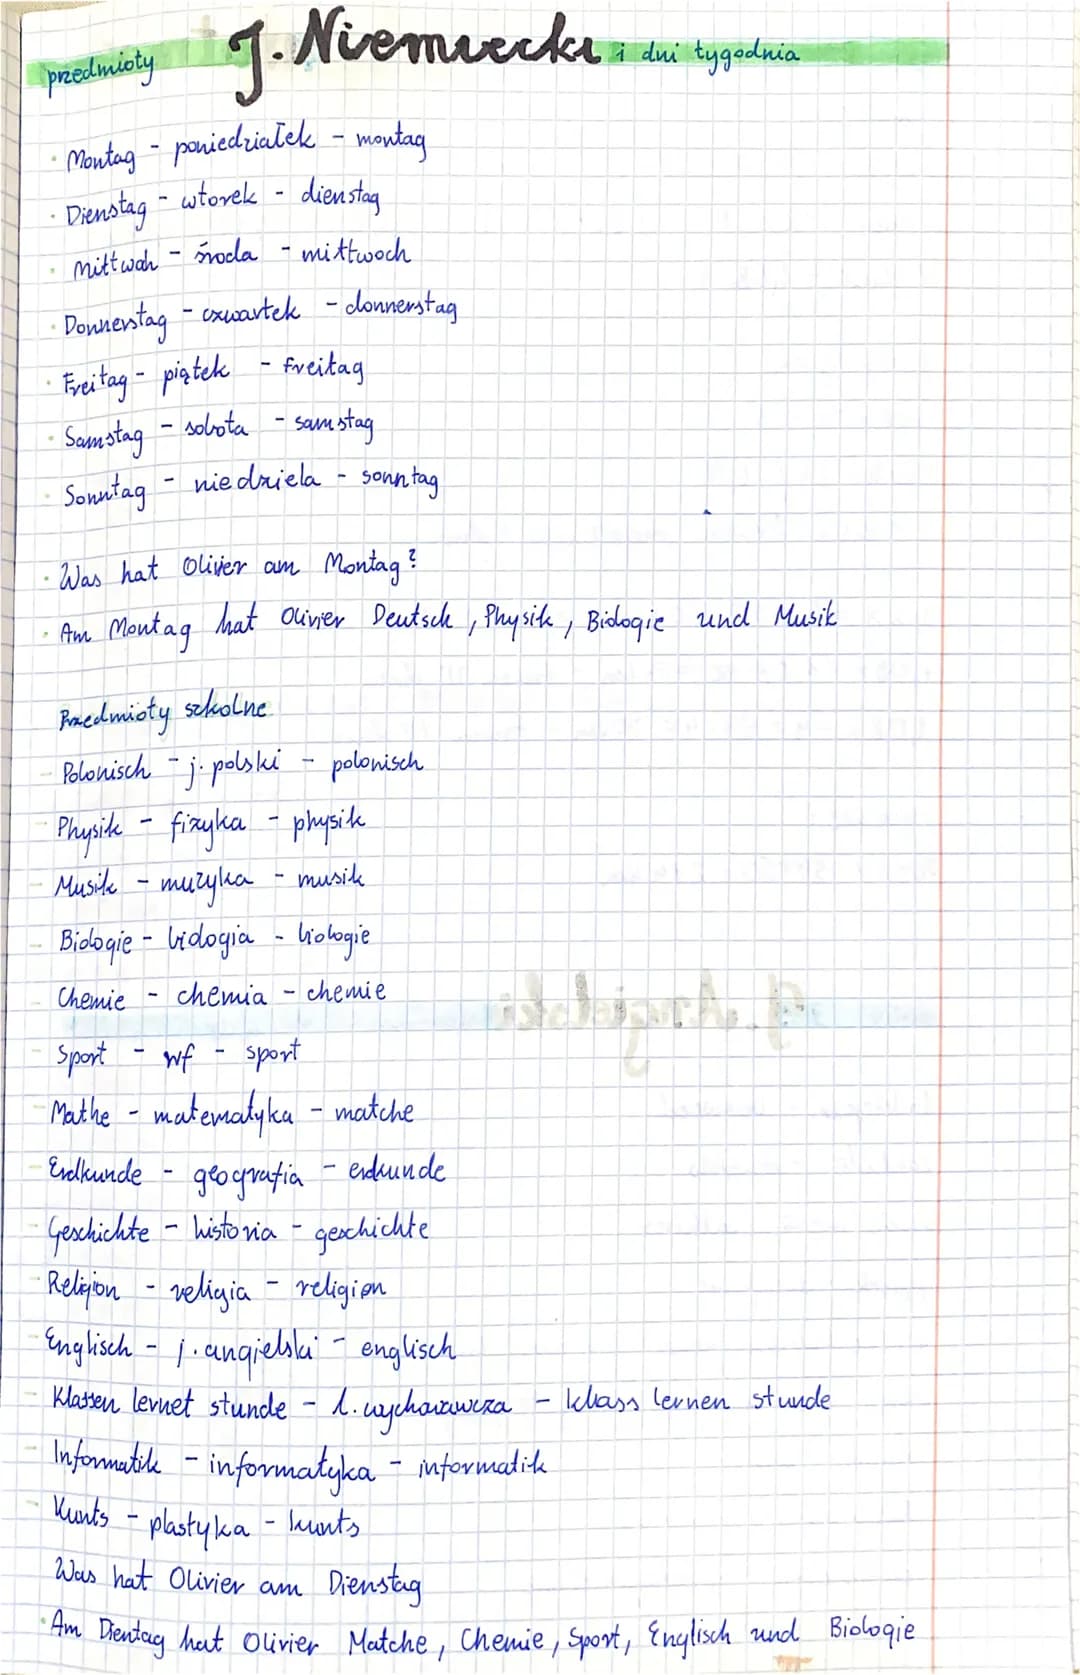 przedmioty J. Niemiecki i dni tygodnia
· Montag - poniedziałek - montag
· Dienstag - wtorek - dienstag
· Mittwoh - środa - mittwoch
· Donnerstag - czwartek - donnerstag
· Freitag - piątek - freitag
· Samstag - sobota - samstag
· Sonntag - niedziela - sonntag
· Was hat Olivier am Montag?
· Am Montag hat Olivier Deutsch, Physik, Biologie und Musik
Przedmioty szkolne
- Polonisch - j. polski - polonisch
- Physik - fizyka - physik
- Musik - muzyka - musik
- Biologie - biologia - biologie
- Chemie - chemia - chemie
- Sport - wf - sport
- Mathe - matematyka - matche
- Erdkunde - geografia - erdkunde
- Geschichte - historia - geschichte
- Religion - religia - religion
- Englisch - j. angielski - englisch
- Klassen lernet stunde - l. wychowawcza - klass lernen stunde
- Informatik - informatyka - informatik
- Kunts - plastyka - kunts
Was hat Olivier am Dienstag
· Am Dientag hat Olivier Matche, Chemie, Sport, Englisch und Biologie